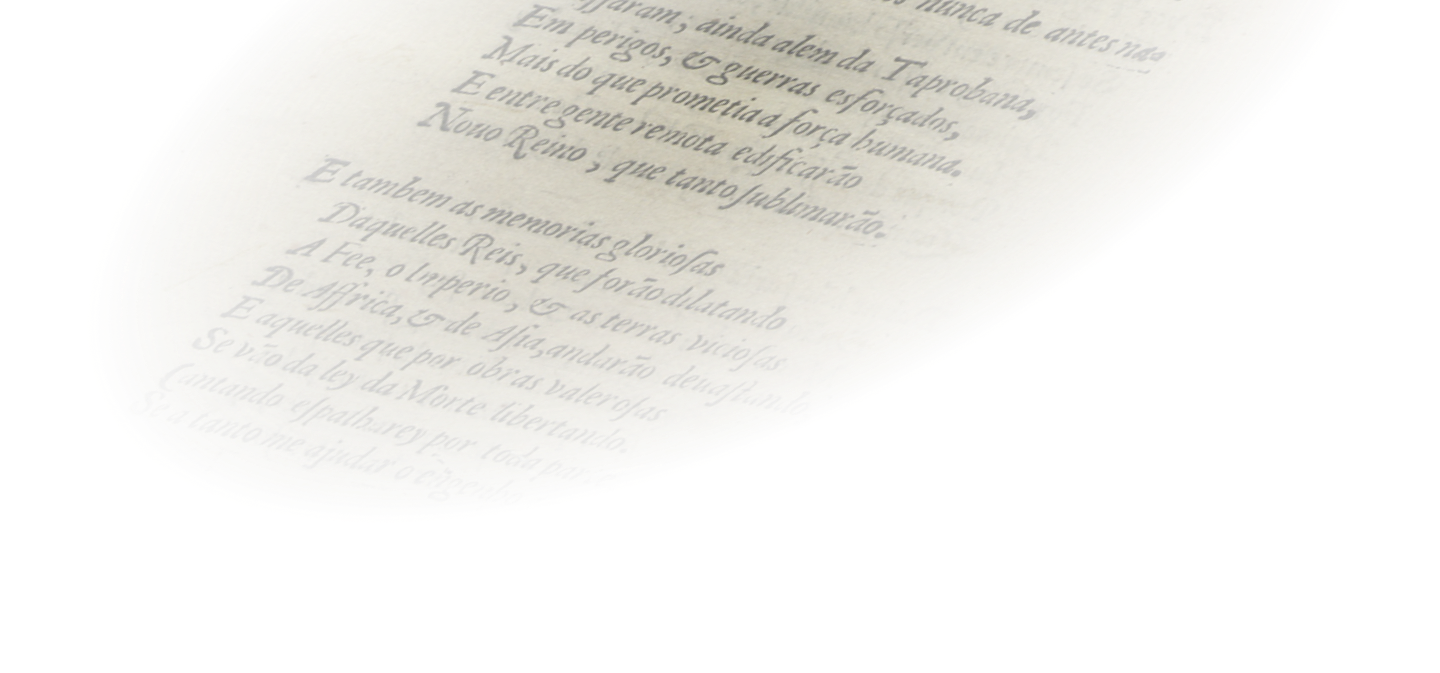 nunca de antes na
ſſaram, ainda alem da Taprobana,
Em perigos, & guerras esforçados,
Mais do que prometia a força humana.
E entre gente remota edificarão
Nouo Reino, que tanto ſublimarão.
E tambem as memorias glorioſas
Daquelles Reis, que forão dilatando
A Fee, o Imperio, & as terras vicioſas
De Affrica, & de Aſia, andarão deuaſtando
E aquelles que por obras valeroſas
Se vão da ley da Morte libertando.
Cantando eſpalharey por toda
Se a tanto me ajudar o